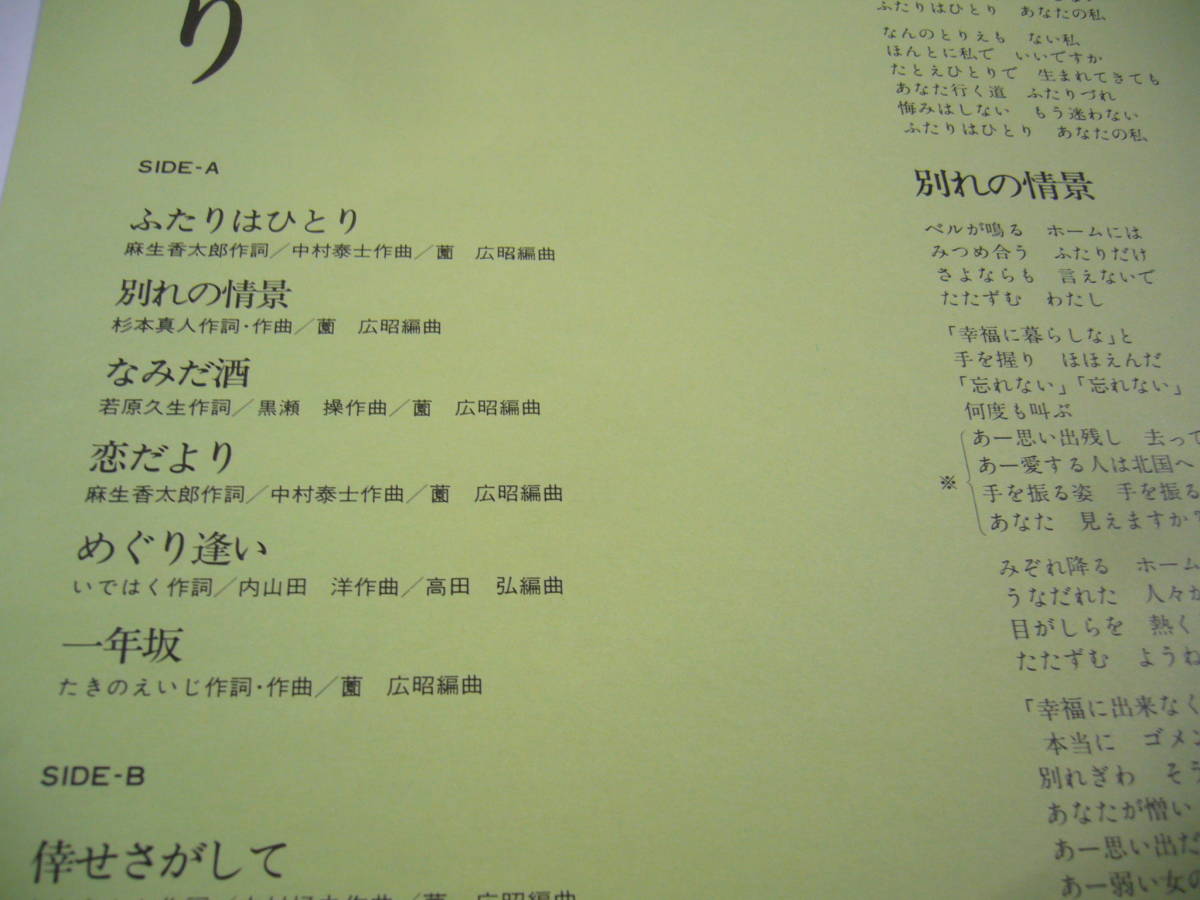 り
SIDE-A
ふたりはひとり
麻生香太郎作詞／中村泰士作曲／薗 広昭編曲
別れの情景
杉本真人作詞・作曲／薗 広昭編曲
なみだ酒
若原久生作詞／黒瀬 操作曲／薗 広昭編曲
恋だより
麻生香太郎作詞／中村泰士作曲／薗 広昭編曲
めぐり逢い
いではく作詞／内山田 洋作曲／高田 弘編曲
一年坂
たきのえいじ作詞・作曲／薗 広昭編曲
SIDE-B
倖せさがして
作曲／薗 広昭編曲
ふたりはひとり あなたの私
なんのとりえも ない私
ほんとに私で いいですか
たとえひとりで 生まれてきても
あなた行く道 ふたりづれ
悔みはしない もう迷わない
ふたりはひとり あなたの私
別れの情景
ベルが鳴る ホームには
みつめ合う ふたりだけ
さよならも 言えないで
たたずむ わたし
「幸福に暮らしな」と
手を握り ほほえんだ
「忘れない」「忘れない」
何度も叫ぶ
※
あー思い出残し 去って
あー愛する人は北国へ
手を振る姿 手を振る
あなた 見えますか
みぞれ降る ホーム
うなだれた 人々が
目がしらを 熱く
たたずむ ようね
「幸福に出来なく
本当に ゴメン
別れぎわ そう
あなたが憎い
あー思い出だ
あー弱い女の